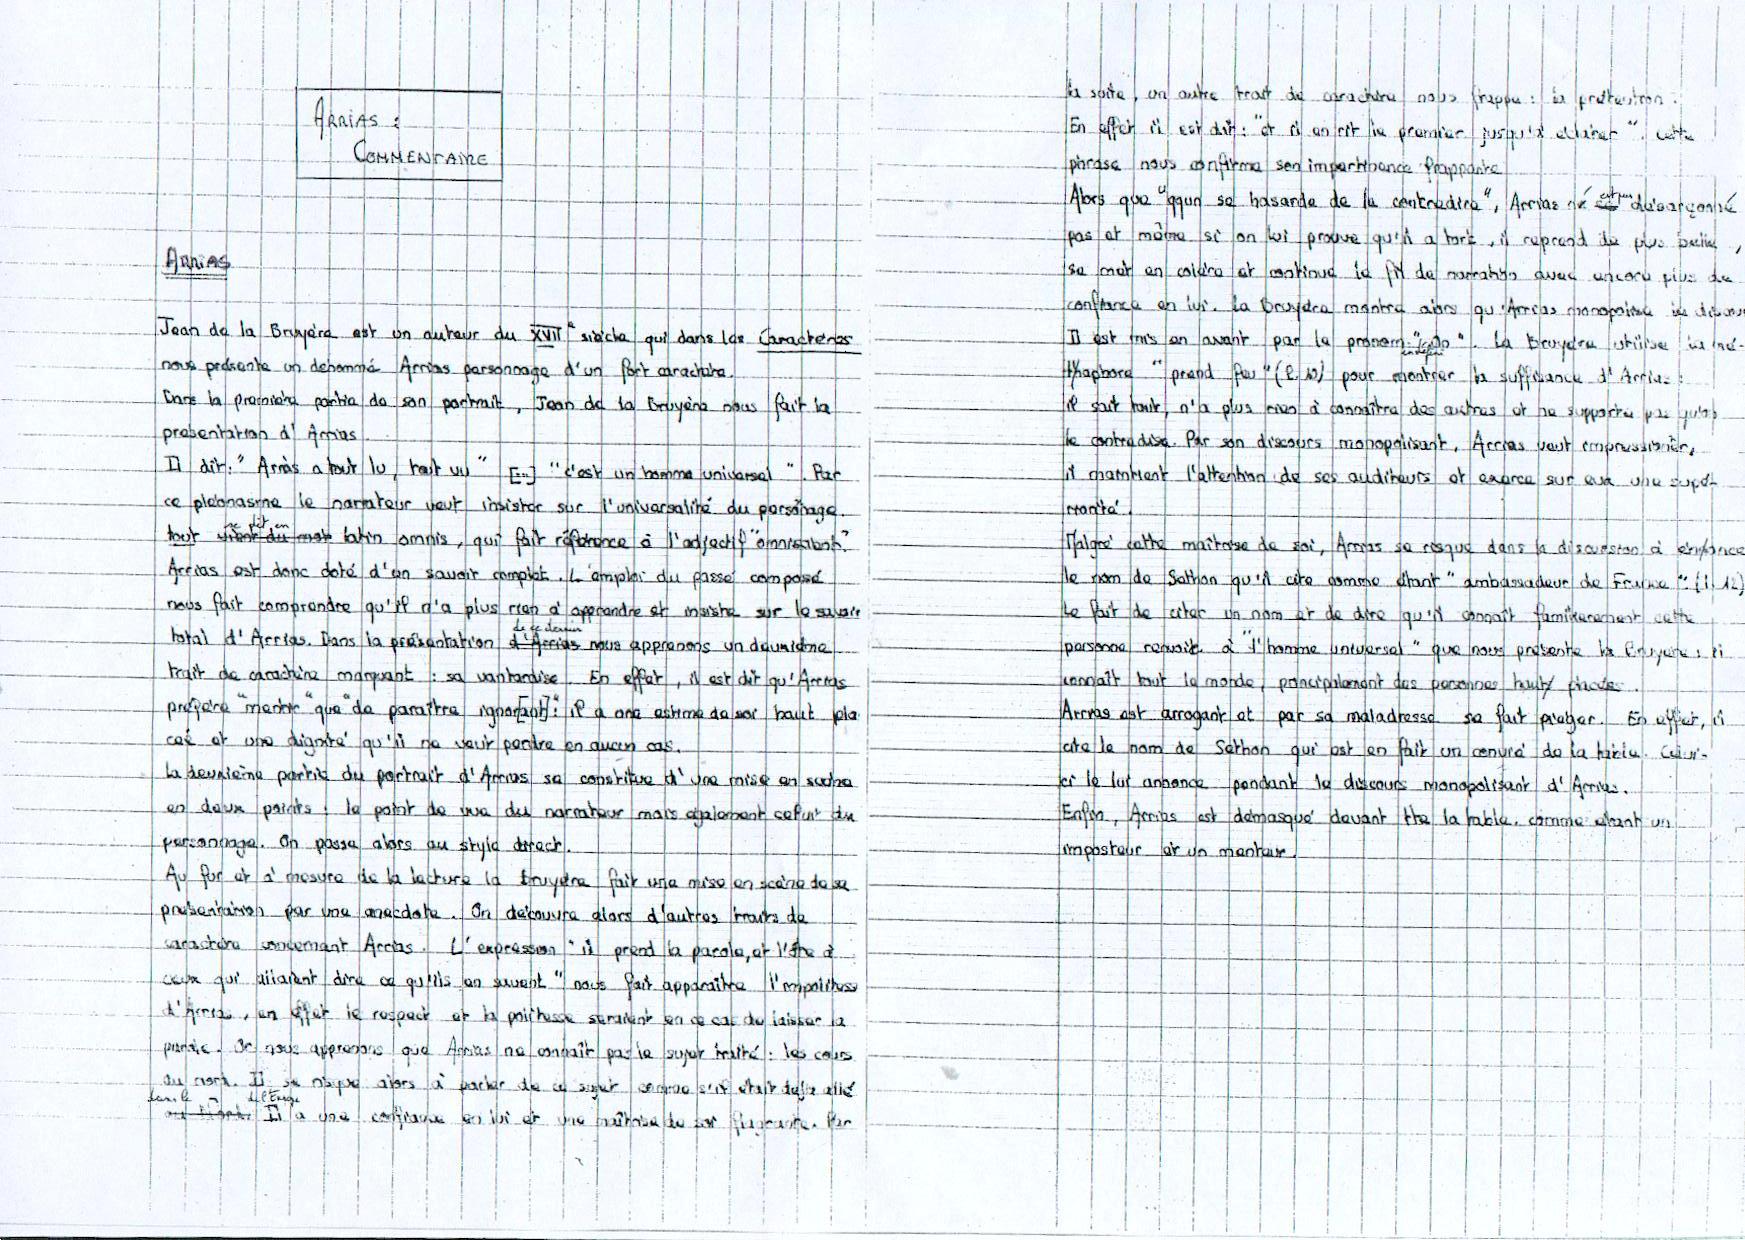 ARRIAS :
COMMENTAIRE
ARRIAS
Jean de la Bruyère est un auteur du XVII° siècle qui dans les Caractères
nous présente un dénommé Arrias personnage d'un fort caractère.
Dans la première partie de son portrait, Jean de la Bruyère nous fait la
présentation d'Arrias.
Il dit : " Arrias a tout lu, tout vu " [...] "c'est un homme universel ". Par
ce pléonasme le narrateur veut insister sur l'universalité du personnage.
tout se dit en latin omnis, qui fait référence à l'adjectif "omniscient".
Arrias est donc doté d'un savoir complet. L'emploi du passé composé
nous fait comprendre qu'il n'a plus rien à apprendre et insiste sur le savoir
total d'Arrias. Dans la présentation de ce dernier nous apprenons un deuxième
trait de caractère marquant : sa vantardise. En effet, il est dit qu'Arrias
préfère "mentir" que "de paraître ignor[ant]" : il a une estime de soi haut pla
cée et une dignité qu'il ne veut perdre en aucun cas.
La deuxième partie du portrait d'Arrias se constitue d'une mise en scène
en deux points : le point de vue du narrateur mais également celui du
personnage. On passe alors au style direct.
Au fur et à mesure de la lecture la Bruyère fait une mise en scène de sa
présentation par une anecdote. On découvre alors d'autres traits de
caractère concernant Arrias. L'expression " il prend la parole, et l'ôte à
ceux qui allaient dire ce qu'ils en savent " nous fait apparaître l'impolitesse
d'Arrias, en effet le respect et la politesse seraient en ce cas de laisser la
parole. Or nous apprenons que Arrias ne connaît pas le sujet traité : les cours
du nord. Il se risque alors à parler de ce sujet comme s'il était déjà allé
Il a une confiance en lui et une maîtrise de soi flagrante. Par
la suite, un autre trait de caractère nous frappe : la prétention.
En effet il est dit : "et il en rit le premier jusqu'à éclater ". Cette
phrase nous confirme son impertinence frappante
Alors que "qqun se hasarde de le contredire", Arrias n'est désarçonné
pas et même si on lui prouve qu'il a tort, il reprend de plus belle,
se met en colère et continue le fil de narration avec encore plus de
confiance en lui. La Bruyère montre alors qu'Arrias monopolise le discours
Il est mis en avant par le pronom indéfini "on". La Bruyère utilise la mé-
thaphore " prend feu " (l. 10) pour montrer la suffisance d'Arrias :
il sait tout, n'a plus rien à connaître des autres et ne supporte pas qu'on
le contredise. Par son discours monopolisant, Arrias veut impressionner,
il maintient l'attention de ses auditeurs et exerce sur eux une supé-
riorité.
Malgré cette maîtrise de soi, Arrias se risque dans la discussion à
le nom de Sethon qu'il cite comme étant " ambassadeur de France " (l.12)
Le fait de citer un nom et de dire qu'il connaît familièrement cette
personne renvoie à "l'homme universel " que nous présente la Bruyère : il
connaît tout le monde, principalement des personnes haut placées.
Arrias est arrogant et par sa maladresse se fait piéger. En effet, il
cite le nom de Sethon qui est en fait un convive de la table. Celui-
ci le lui annonce pendant le discours monopolisant d'Arrias.
Enfin, Arrias est démasqué devant tte la table, comme étant un
imposteur et un menteur.